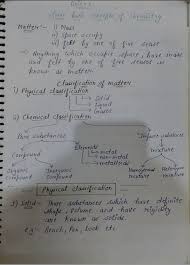 Some basic concepts of chemistry
Matter:- i) Mass
ii) space occupy
iii) felt by one of five sense
→ Anything which occupies space, have mass
and felt by one of five senses is
known as matter.
Classification of matter:-
i) Physical classification
Solid
liquid
Gases
ii) Chemical classification
Pure substances
Impure substances
Compound
Elements
mixture
metal
non-metal
metalloids
Organic
compound
Inorganic
compound
Homogenous
mixture
Heterogenous
mixture
Physical classification
1) Solid:- Those substances which have definite
shape, volume and have rigidity
are known as solids.
eg:- Bench, Pen, book etc